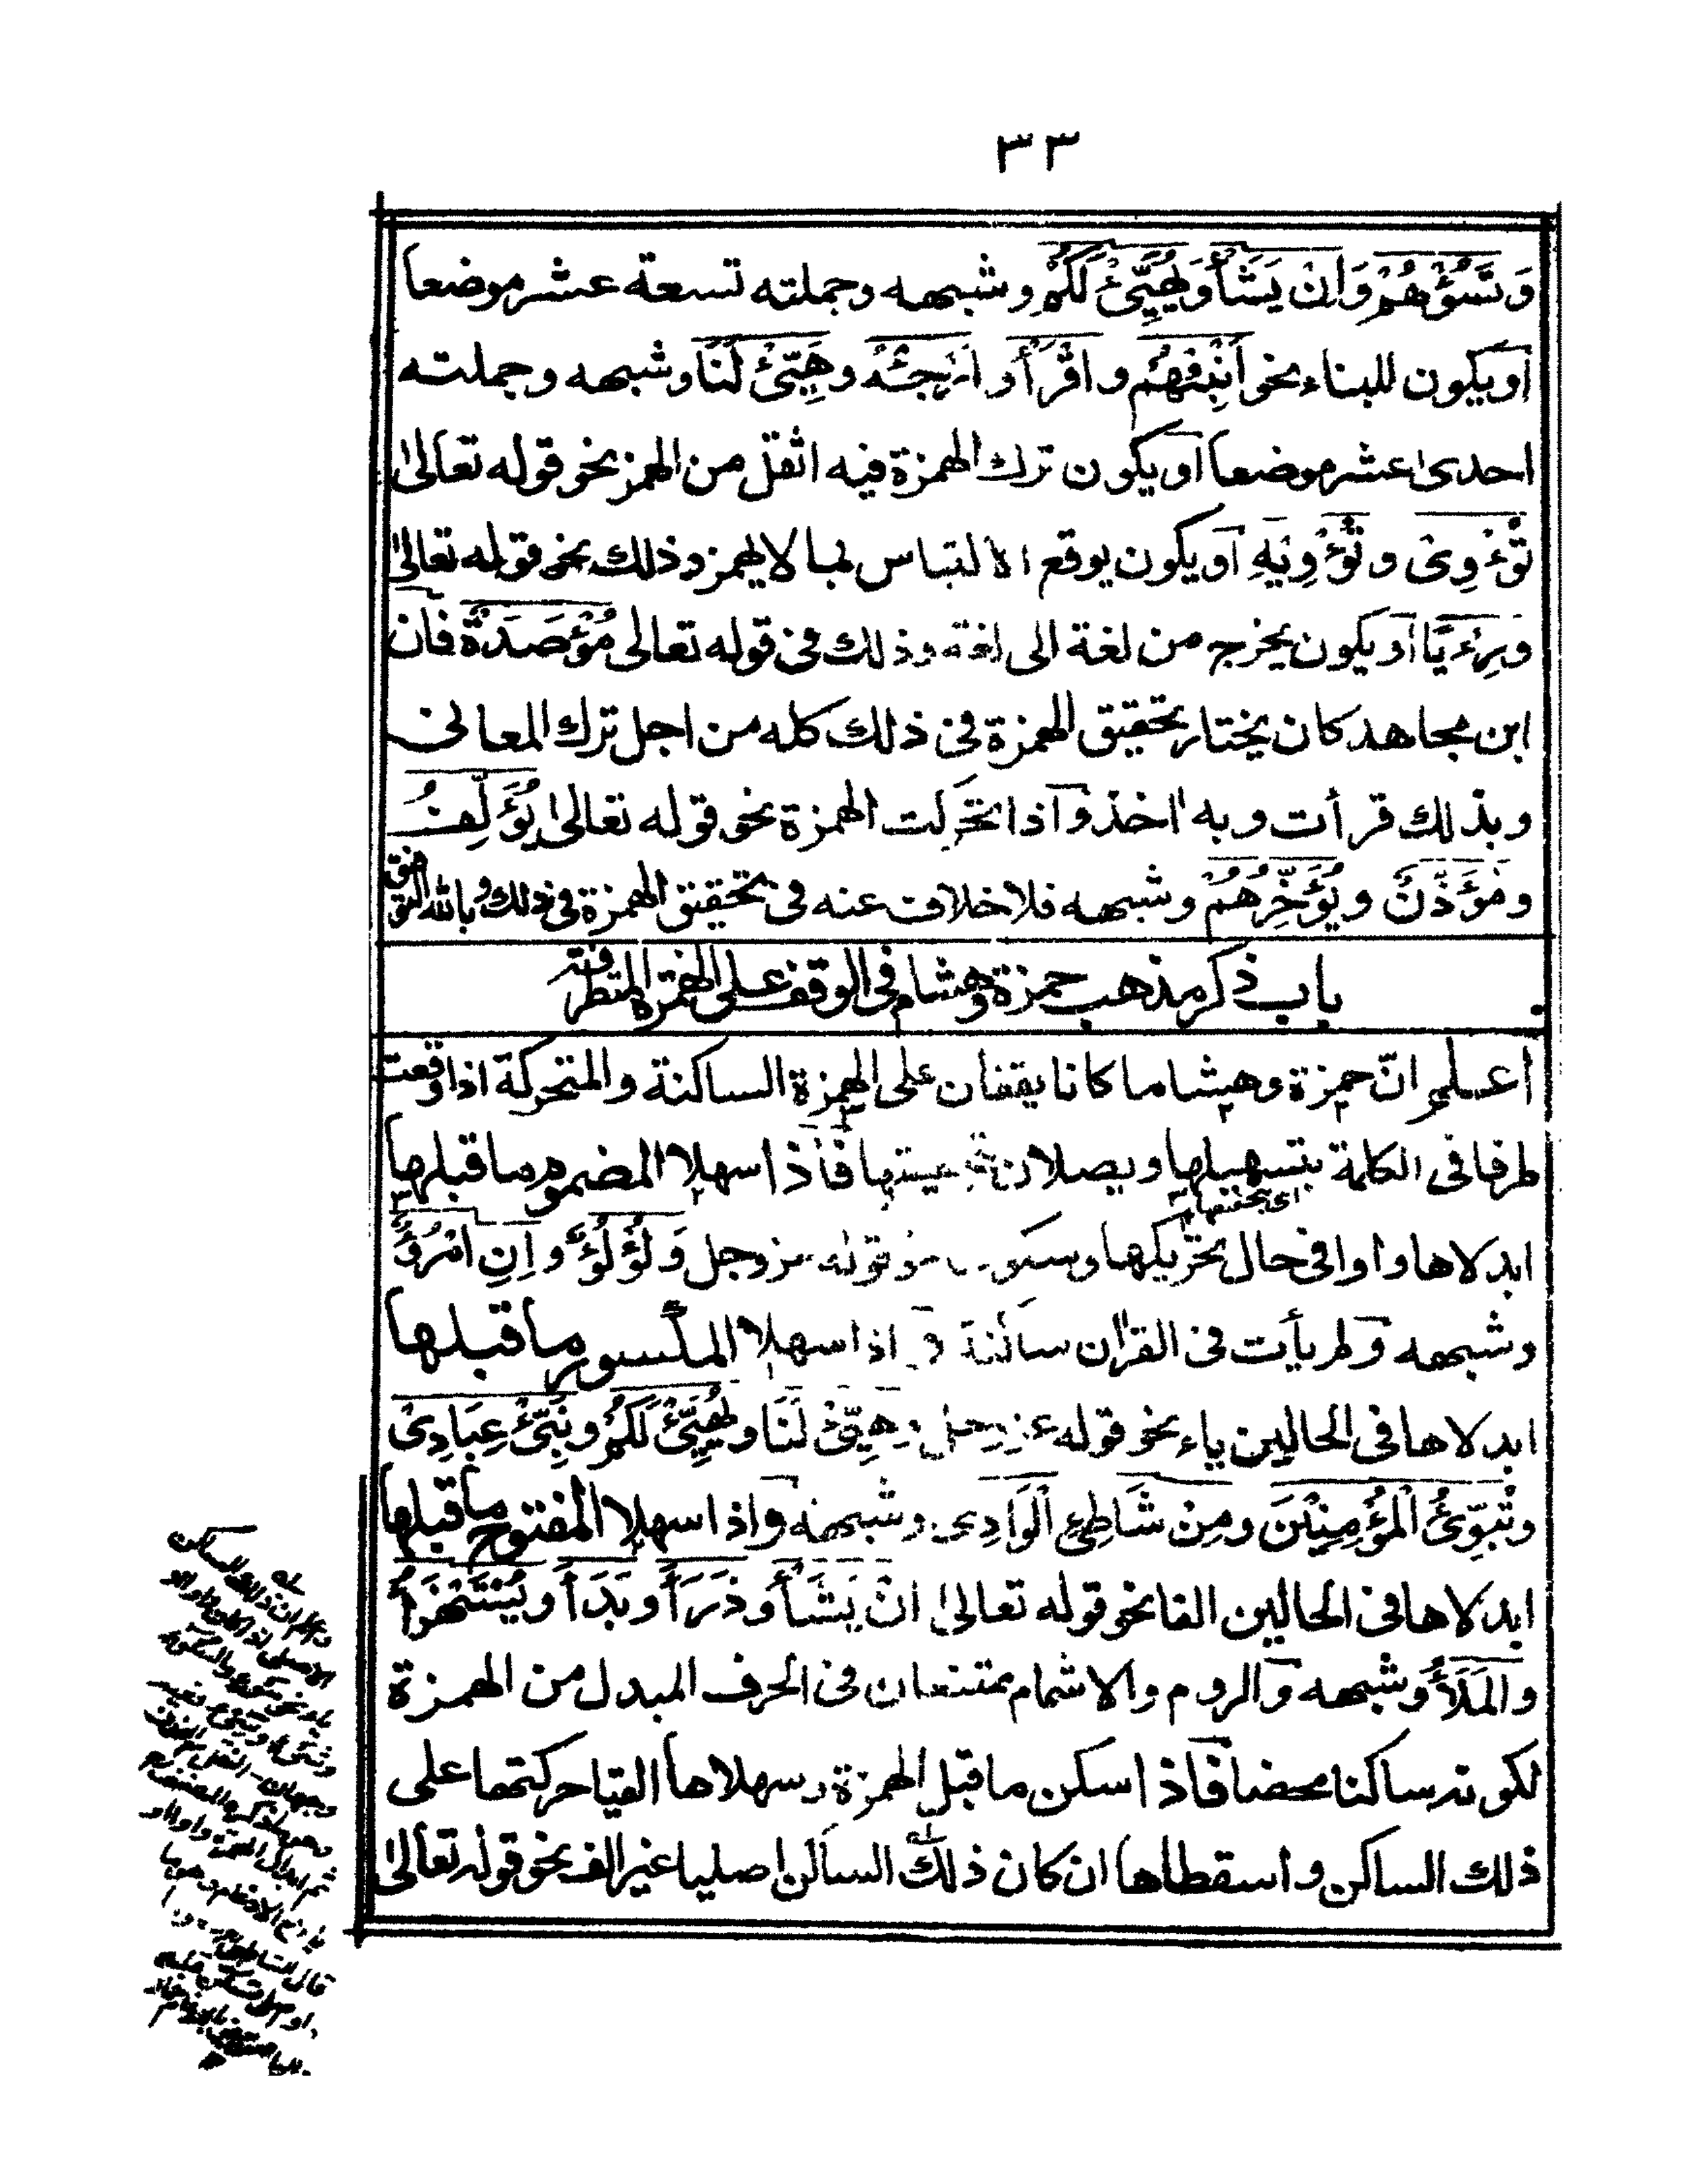 ٣٣
وَتَسُؤْهُمْ وَاِنْ يَشَأْ وَيُهَيِّئْ لَكُمْ وشبهه وجملته تسعة عشر موضعا
او يكون للبناء نحو اَنْبِئْهُمْ و اقْرَأْ و اَرْجِئْهُ وهَيِّئْ لَنَا وشبهه وجملته
احدى عشر موضعا او يكون ترك الهمزة فيه اثقل من الهمز نحو قوله تعالىٰ
تُؤْوِىْ و تُؤْوِيْهِ او يكون يوقع الالتباس بما لا يهمز وذلك نحو قوله تعالىٰ
ورِءْيًا او يكون يخرج من لغة الى لغة وذلك فى قوله تعالى مُؤْصَدَةٌ فان
ابن مجاهد كان يختار تحقيق الهمزة فى ذلك كله من اجل ترك المعانى
وبذلك قرأت وبه اخذ واذا تحركت الهمزة نحو قوله تعالىٰ يُؤَلِّفُ
ومُؤَذِّنٌ و يُؤَخِّرُهُمْ وشبهه فلا خلاف عنه فى تحقيق الهمزة فى ذلك وبالله التوفيق
باب ذكر مذهب حمزة وهشام فى الوقف على الهمزة المتطرفة
اعلم انّ حمزة وهشاما كانا يقفان على الهمزة الساكنة والمتحركة اذا وقعت
طرفا فى الكلمة بتسهيلها ويصلان بتحقيقها فاذا سهلا المضموم ما قبلها
اى بتخفيفها
ابدلاها واوا فى حال تحريكها وسكونها نحو قوله عزوجل وَلُؤْلُؤٌ و اِنِ امْرُؤٌ
وشبهه ولم يأت فى القران ساكنة و اذا سهلا المكسور ما قبلها
ابدلاها فى الحالين ياء نحو قوله عزوجل وهَيِّئْ لَنَا ويُهَيِّئْ لَكُمْ ونَبِّئْ عِبَادِىْ
وتُبَوِّئُ الْمُؤْمِنِيْنَ ومِنْ شَاطِئِ الْوَادِى وشبهه واذا سهلا المفتوح ما قبلها
ابدلاها فى الحالين الفا نحو قوله تعالىٰ اِنْ يَشَأْ وذَرَأَ وبَدَأَ ويُسْتَهْزَأُ
والمَلَأُ وشبهه والروم والاشمام ممتنعان فى الحرف المبدل من الهمزة
لكونه ساكنا محضا فاذا سكن ما قبل الهمزة وسهلاها القيا حركتها على
ذلك الساكن واسقطاها ان كان ذلك الساكن اصليا غير الف نحو قوله تعالىٰ